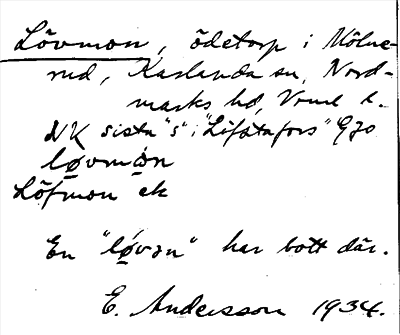 Lövmon, ödetorp i Mölne-
rud, Karlanda sn, Nord-
marks hd, Vrml l.
NK sista "s" i "Lifstafors" G70
lǫvmǫn
Löfmon ek
En "lǫvən" har bott där.
E. Andersson 1934.